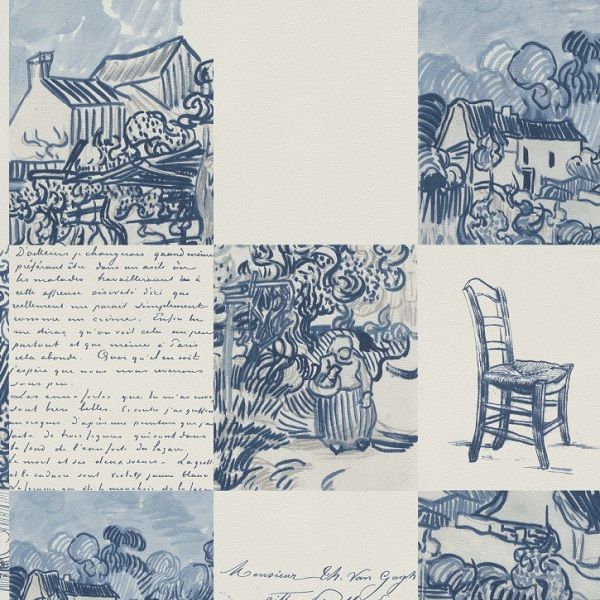 D'ailleurs j. changerais quand même
préférant être dans un asile où
les malades travailleraient à
cette affreuse oisiveté d'ici qui
réellement me parait simplement
comme un crime. Enfin tu
me diras, qu'on voit cela un peu
partout et que même à Paris
cela abonde. Quoi qu'il en soit
j'espère que nous nous verrons
sous peu.
Les eaux fortes que tu m'as
sont bien belles. Ci contre j'ai
un croquis d'après une peinture que j'
de trois figures qui sont dans
le fond de l'eau forte du Lazare
le mort et ses deux soeurs.
et le cadavre sont violet jaune blanc
Monsieur Th. Van Gogh